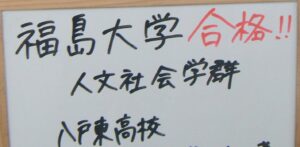 福島大学 合格!!
人文社会学群
八戸東高校